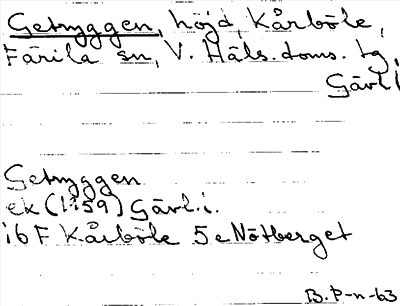 Getryggen, höjd, Kårböle,
Färila sn, V. Häls. doms. tg,
Gävl.
Getryggen
ek (1:59) Gävl. i.
16 F Kårböle 5 e Nötberget
B. P-n-63